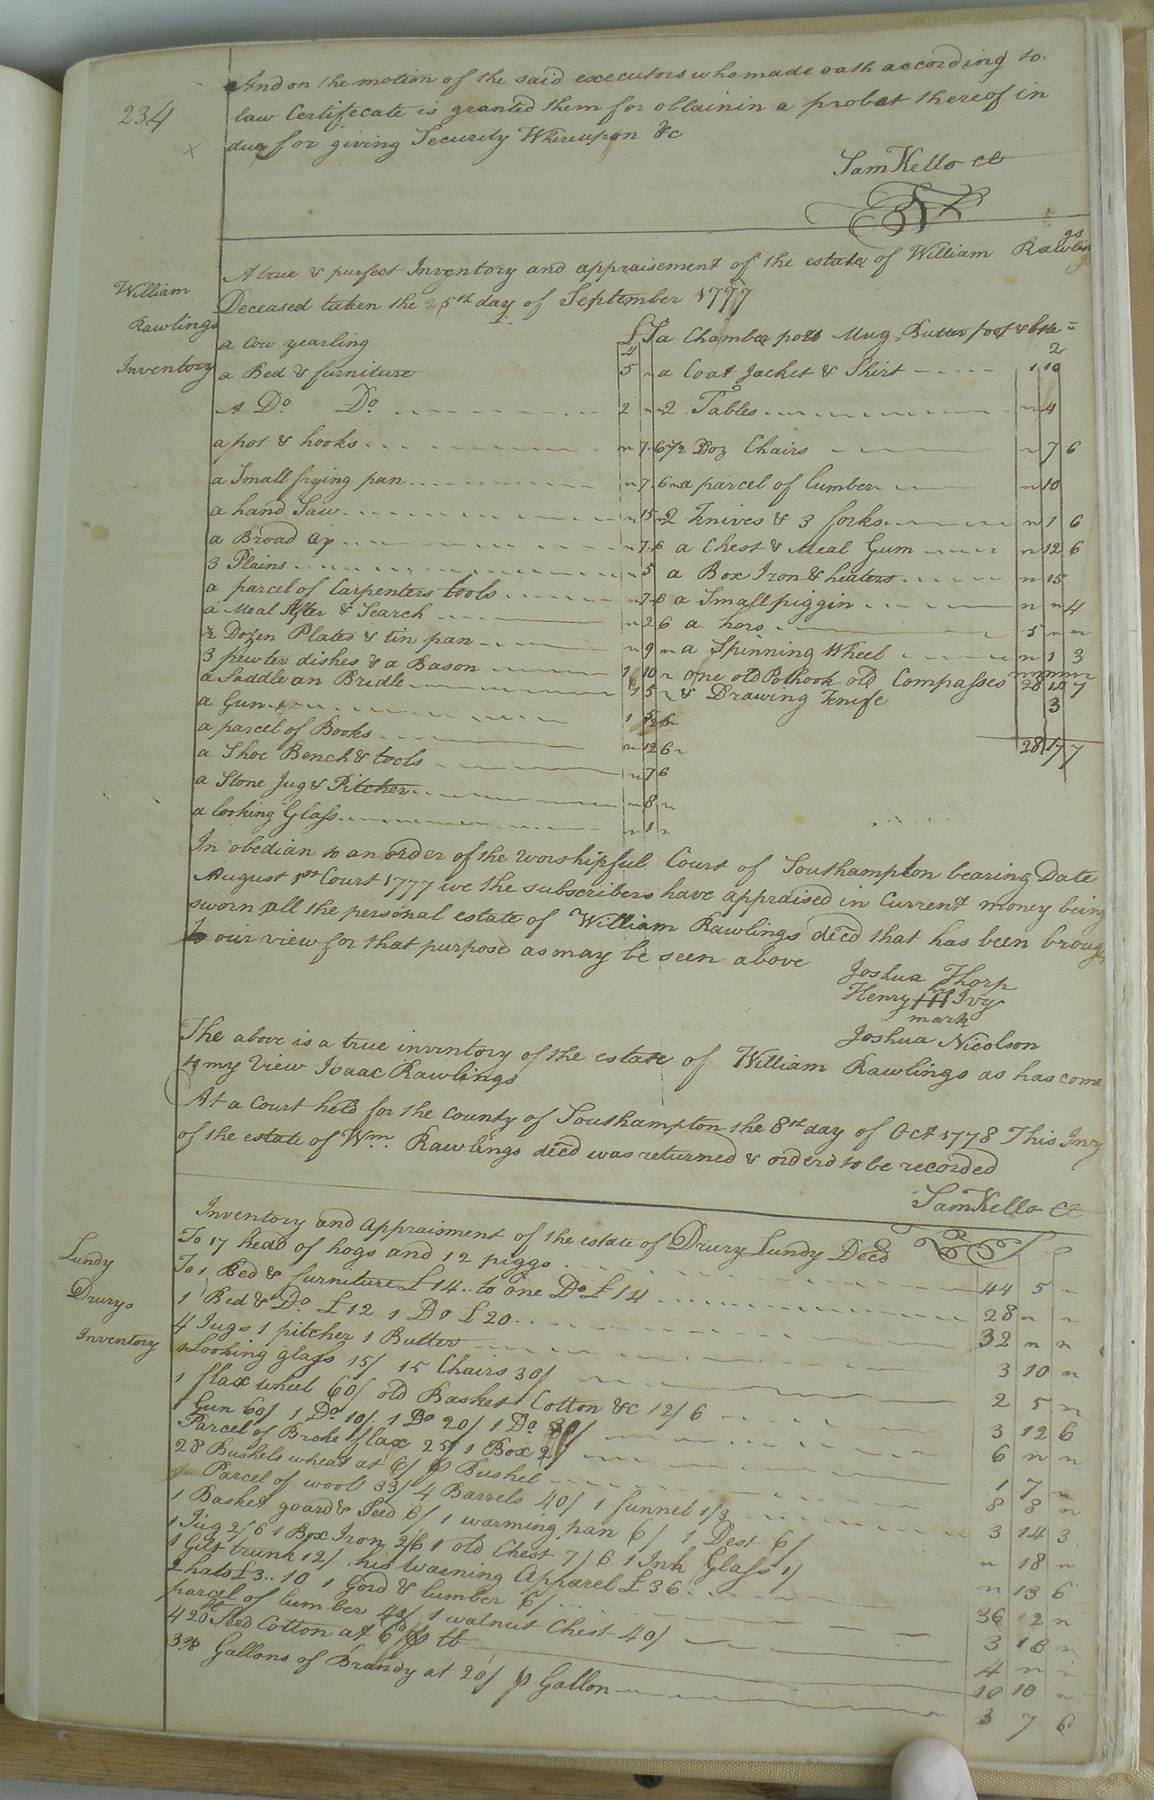 234
And on the motion of the said executors who made oath according to
law Certifecate is granted them for oblainin a probat thereof in
due for giving Security Whereupon &c
Sam Kello Cl
William
Rawlings
Inventory
A true & purfect Inventory and appraisement of the estate of William Rawlings
Deceased taken the 5th day of September 1777
a Cow yearling
a Bed & furniture 5 "
A Do Do 2 "
a pot & hooks " 7. 6
a Small frying pan " 7. 6
a hand Saw " 15 "
a Broad ax " 7. 6
3 Plains " 5
a parcel of Carpenters tools " 7. 6
a Meal Sifter & Search " 2 6
½ Dozen Plates & tin pan " 9 "
3 pewter dishes & a Bason 1 10 "
a Saddle an Bridle 5 "
a Gun 1
a parcel of Books " 12 6
a Shoe Bench & tools " 7 6
a Stone Jug & Pitcher " 8 "
a looking Glass " 1 "
£ S a Chamber pott Mug Butter pot & 2
a Coat Jacket & Shirt 1 10
2 Tables " 4
½ Doz Chairs " 7 6
a parcel of lumber " 10
2 Knives & 3 forks " 1 6
a Chest & Meal Gum " 12 6
a Box Iron & heaters " 15
a Small piggin " " 4
a hors 5 " "
a Spinning Wheel " 1 3
one old Pothook old Compasses 28 14 7
& Drawing Knife 3
28 17 7
In obedian to an order of the worshipful Court of Southampton bearing Date
August 1st Court 1777 we the subscribers have appraised in Current money being
sworn all the personal estate of William Rawlings decd that has been brough
to our view for that purpose as may be seen above
Joshua Thorp
Henry H Ivy
mark
Joshua Nicolson
The above is a true inventory of the estate of William Rawlings as has come
to my View Isaac Rawlings
At a Court held for the County of Southampton the 8th day of Oct 1778 This Invy
of the estate of Wm Rawlings decd was returned & orderd to be recorded
Sam Kello Cl
Lundy
Drurys
Inventory
Inventory and Appraisment of the estate of Drury Lundy Decd
To 17 head of hogs and 12 piggs 44 5 "
To 1 Bed & furniture £14.. to one Do £14 28 " "
1 Bed & Do £12 1 Do £20 32 " "
4 Jugs 1 pitcher 1 Butter 3 10 "
1 Looking glass 15/ 15 Chairs 30/ 2 5 "
1 flax wheel 60/ old Basket Cotton &c 12/6 3 12 6
1 Gun 60/ 1 Do 10/. 1 Do 20/ 1 Do 30/ 6 " "
Parcel of Broke flax 25/ 1 Box 2/ 1 7 "
28 Bushels wheat at 6/ p Bushel 8 8 "
Parcel of wool 33/ 4 Barrels 40/ 1 funnel 1/3 3 14 3
1 Basket goard & Seed 6/ 1 warming pan 6/ 1 Dest 6/ " 18 "
1 Jug 2/6 1 Box Iron 2/6 1 old Chest 7/6 1 Ink Glass 1/ " 13 6
1 Gilt trunk 12/ his Waening Apparel £36 36 12 "
2 hats £3.. 10 1 Gord & lumber 6/ 3 16 "
parcel of lumber 40/ 1 walnut Chest 40/ 4 " "
420 lb Seed Cotton at 6d p lb 10 10 "
3 Gallons of Brandy at 20/ p Gallon 3 7 6